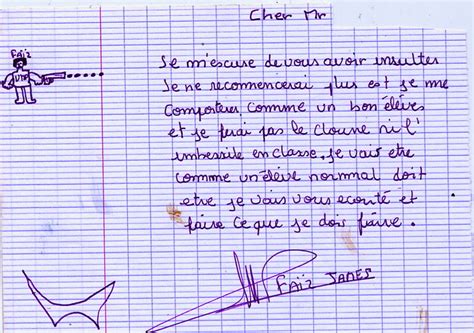 Cher Mr
Faïz
Je m'escuse de vous avoir insulter
Je ne recommencerai plus est je me
Comporterer comme un bon élèves
et je ferai pas le cloune ni l'
imbessile en classe. Je vais etre
comme un élève normmal doit
etre je vais vous ecouté et
faire ce que je dois faire.
Faïz JAMES